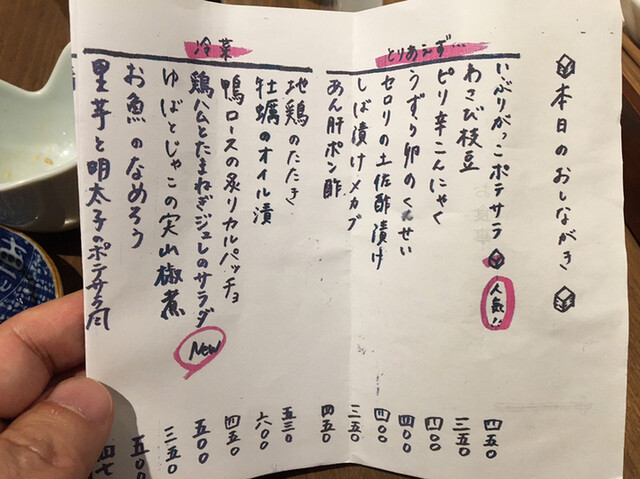 本日のおしながき
とりあえず…
いぶりがっこポテサラ 人気!! 四五〇
わさび枝豆 三五〇
ピリ辛こんにゃく 四〇〇
うずら卵のくんせい 四〇〇
セロリの土佐酢漬け 四〇〇
しば漬けメカブ 三五〇
あん肝ポン酢 四五〇
冷菜
地鶏のたたき 五三〇
牡蠣のオイル漬 六〇〇
鴨ロースの炙りカルパッチョ 四五〇
鶏ハムとたまねぎジュレのサラダ New 五〇〇
ゆばとじゃこの実山椒煮 三五〇
お魚のなめろう 五〇〇
里芋と明太子のポテサラ風 四七